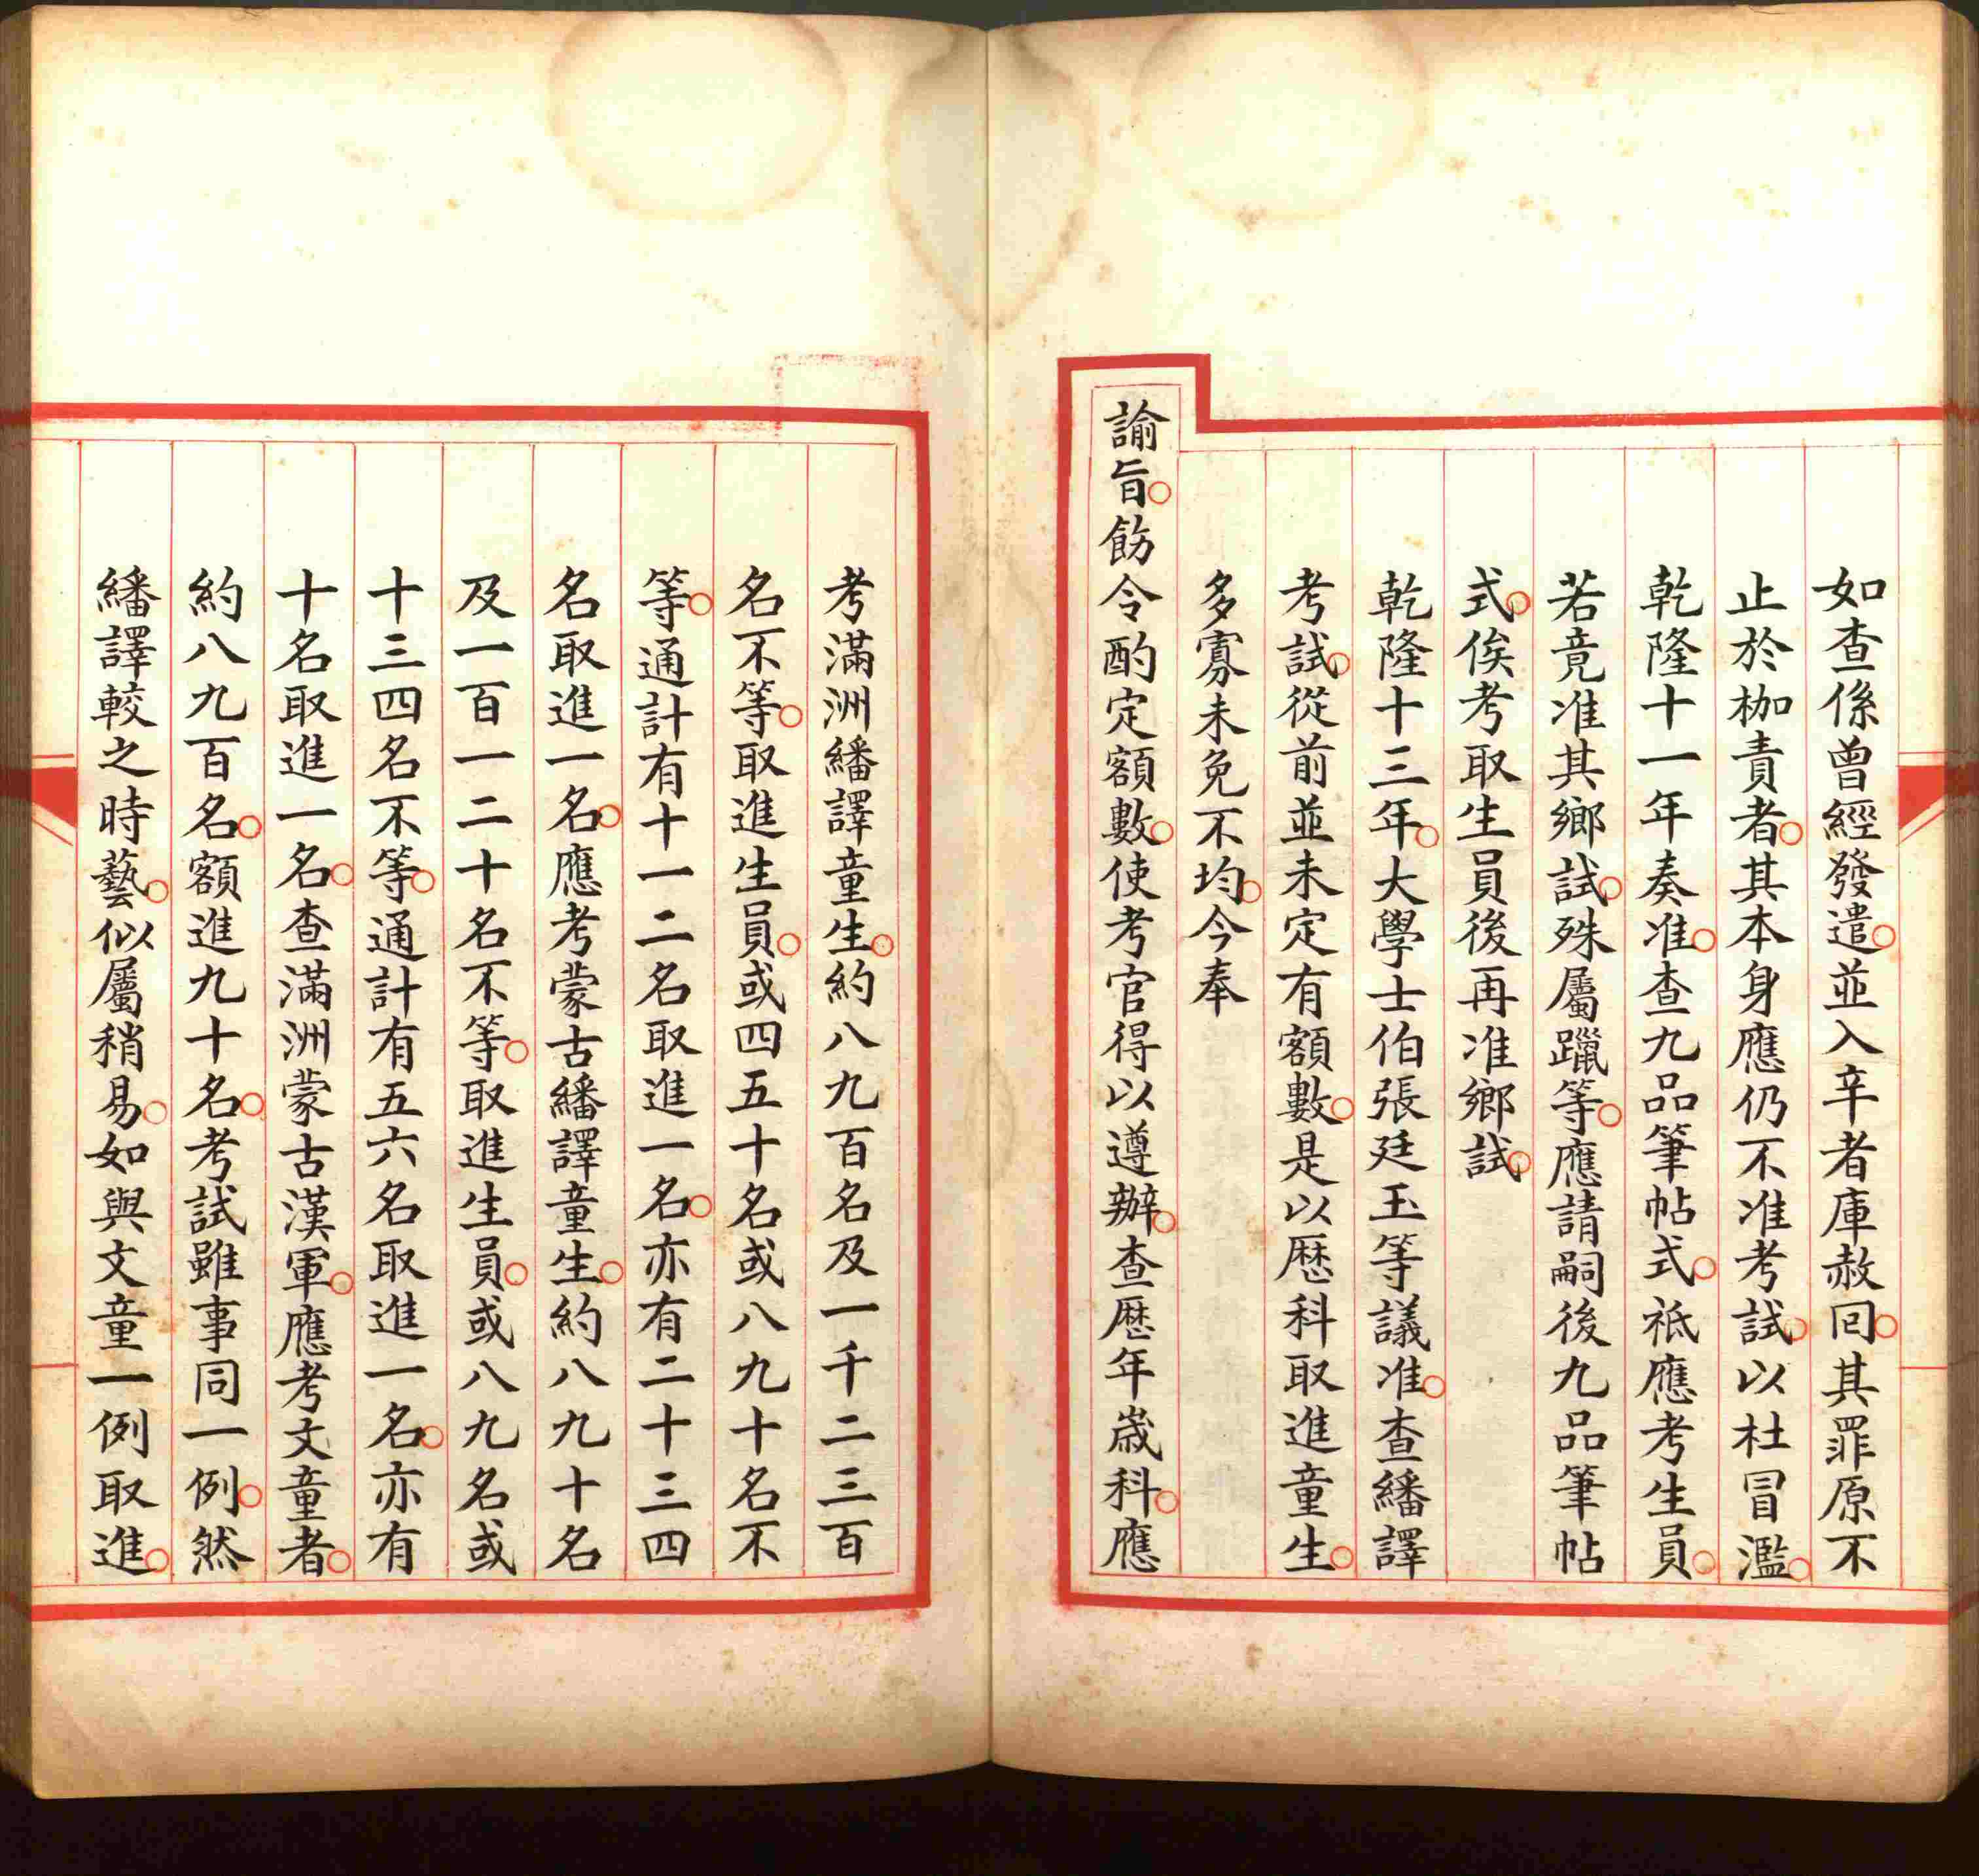 如查係曾經發遣並入辛者庫赦囘其罪原不
止於枷責者其本身應仍不准考試以杜冒濫
乾隆十一年奏准查九品筆帖式祗應考生員
若竟准其鄉試殊屬躐等應請嗣後九品筆帖
式俟考取生員後再准鄉試
乾隆十三年大學士伯張廷玉等議准查繙譯
考試從前並未定有額數是以歷科取進童生
多寡未免不均今奉
諭旨飭令酌定額數使考官得以遵辦查歷年歲科應
考滿洲繙譯童生約八九百名及一千二三百
名不等取進生員或四五十名或八九十名不
等通計有十一二名取進一名亦有二十三四
名取進一名應考蒙古繙譯童生約八九十名
及一百一二十名不等取進生員或八九名或
十三四名不等通計有五六名取進一名亦有
十名取進一名查滿洲蒙古漢軍應考文童者
約八九百名額進九十名考試雖事同一例然
繙譯較之時藝似屬稍易如與文童一例取進